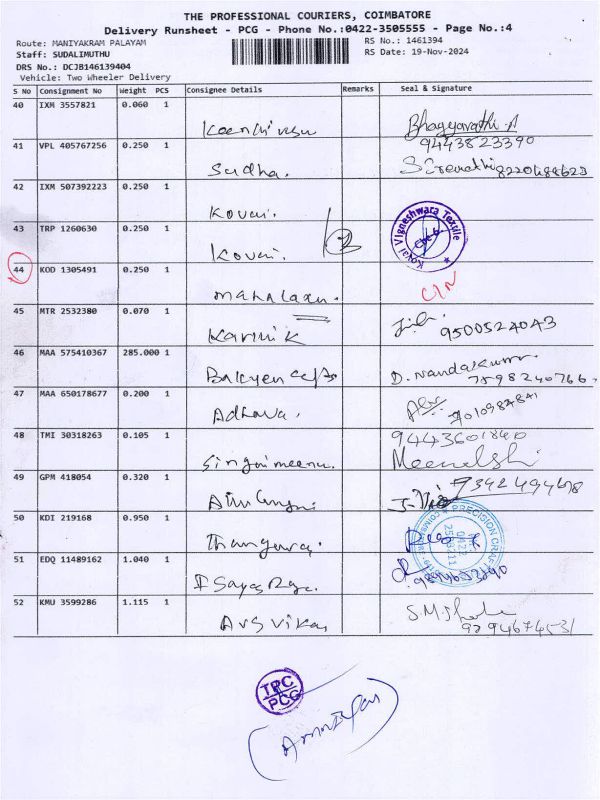 THE PROFESSIONAL COURIERS, COIMBATORE
Delivery Runsheet - PCG - Phone No.:0422-3505555 - Page No.:4
Route: MANIYAKRAM PALAYAM
RS No.: 1461394
Staff: SUDALIMUTHU
RS Date: 19-Nov-2024
DRS No.: DCJB146139404
Vehicle: Two Wheeler Delivery
S No Consignment No Weight PCS Consignee Details Remarks Seal & Signature
40 IXM 3557821 0.060 1
Bhagyavathi.A
9443823390
41 VPL 405767256 0.250 1
Sudha.
42 IXM 507392223 0.250 1
Kovai.
43 TRP 1260630 0.250 1
Kovai. 2
Koyal Vigneshwara Textile
44 KOD 1305491 0.250 1
C/N
45 MTR 2532380 0.070 1
Kartik
9500524043
46 MAA 575410367 285.000 1
D. Nandakumar.
7598240766.
47 MAA 650178677 0.200 1
Adhava.
7010987841
48 TMI 30318263 0.105 1
9443601840
Singaimeenu. Meenakshi
49 GPM 418054 0.320 1
7392494678
50 KDI 219168 0.950 1
PRECISION CRAFT
51 EDQ 11489162 1.040 1
52 KMU 3599286 1.115 1
S.M
AVS Vikas
9294674531
TPC
PCG